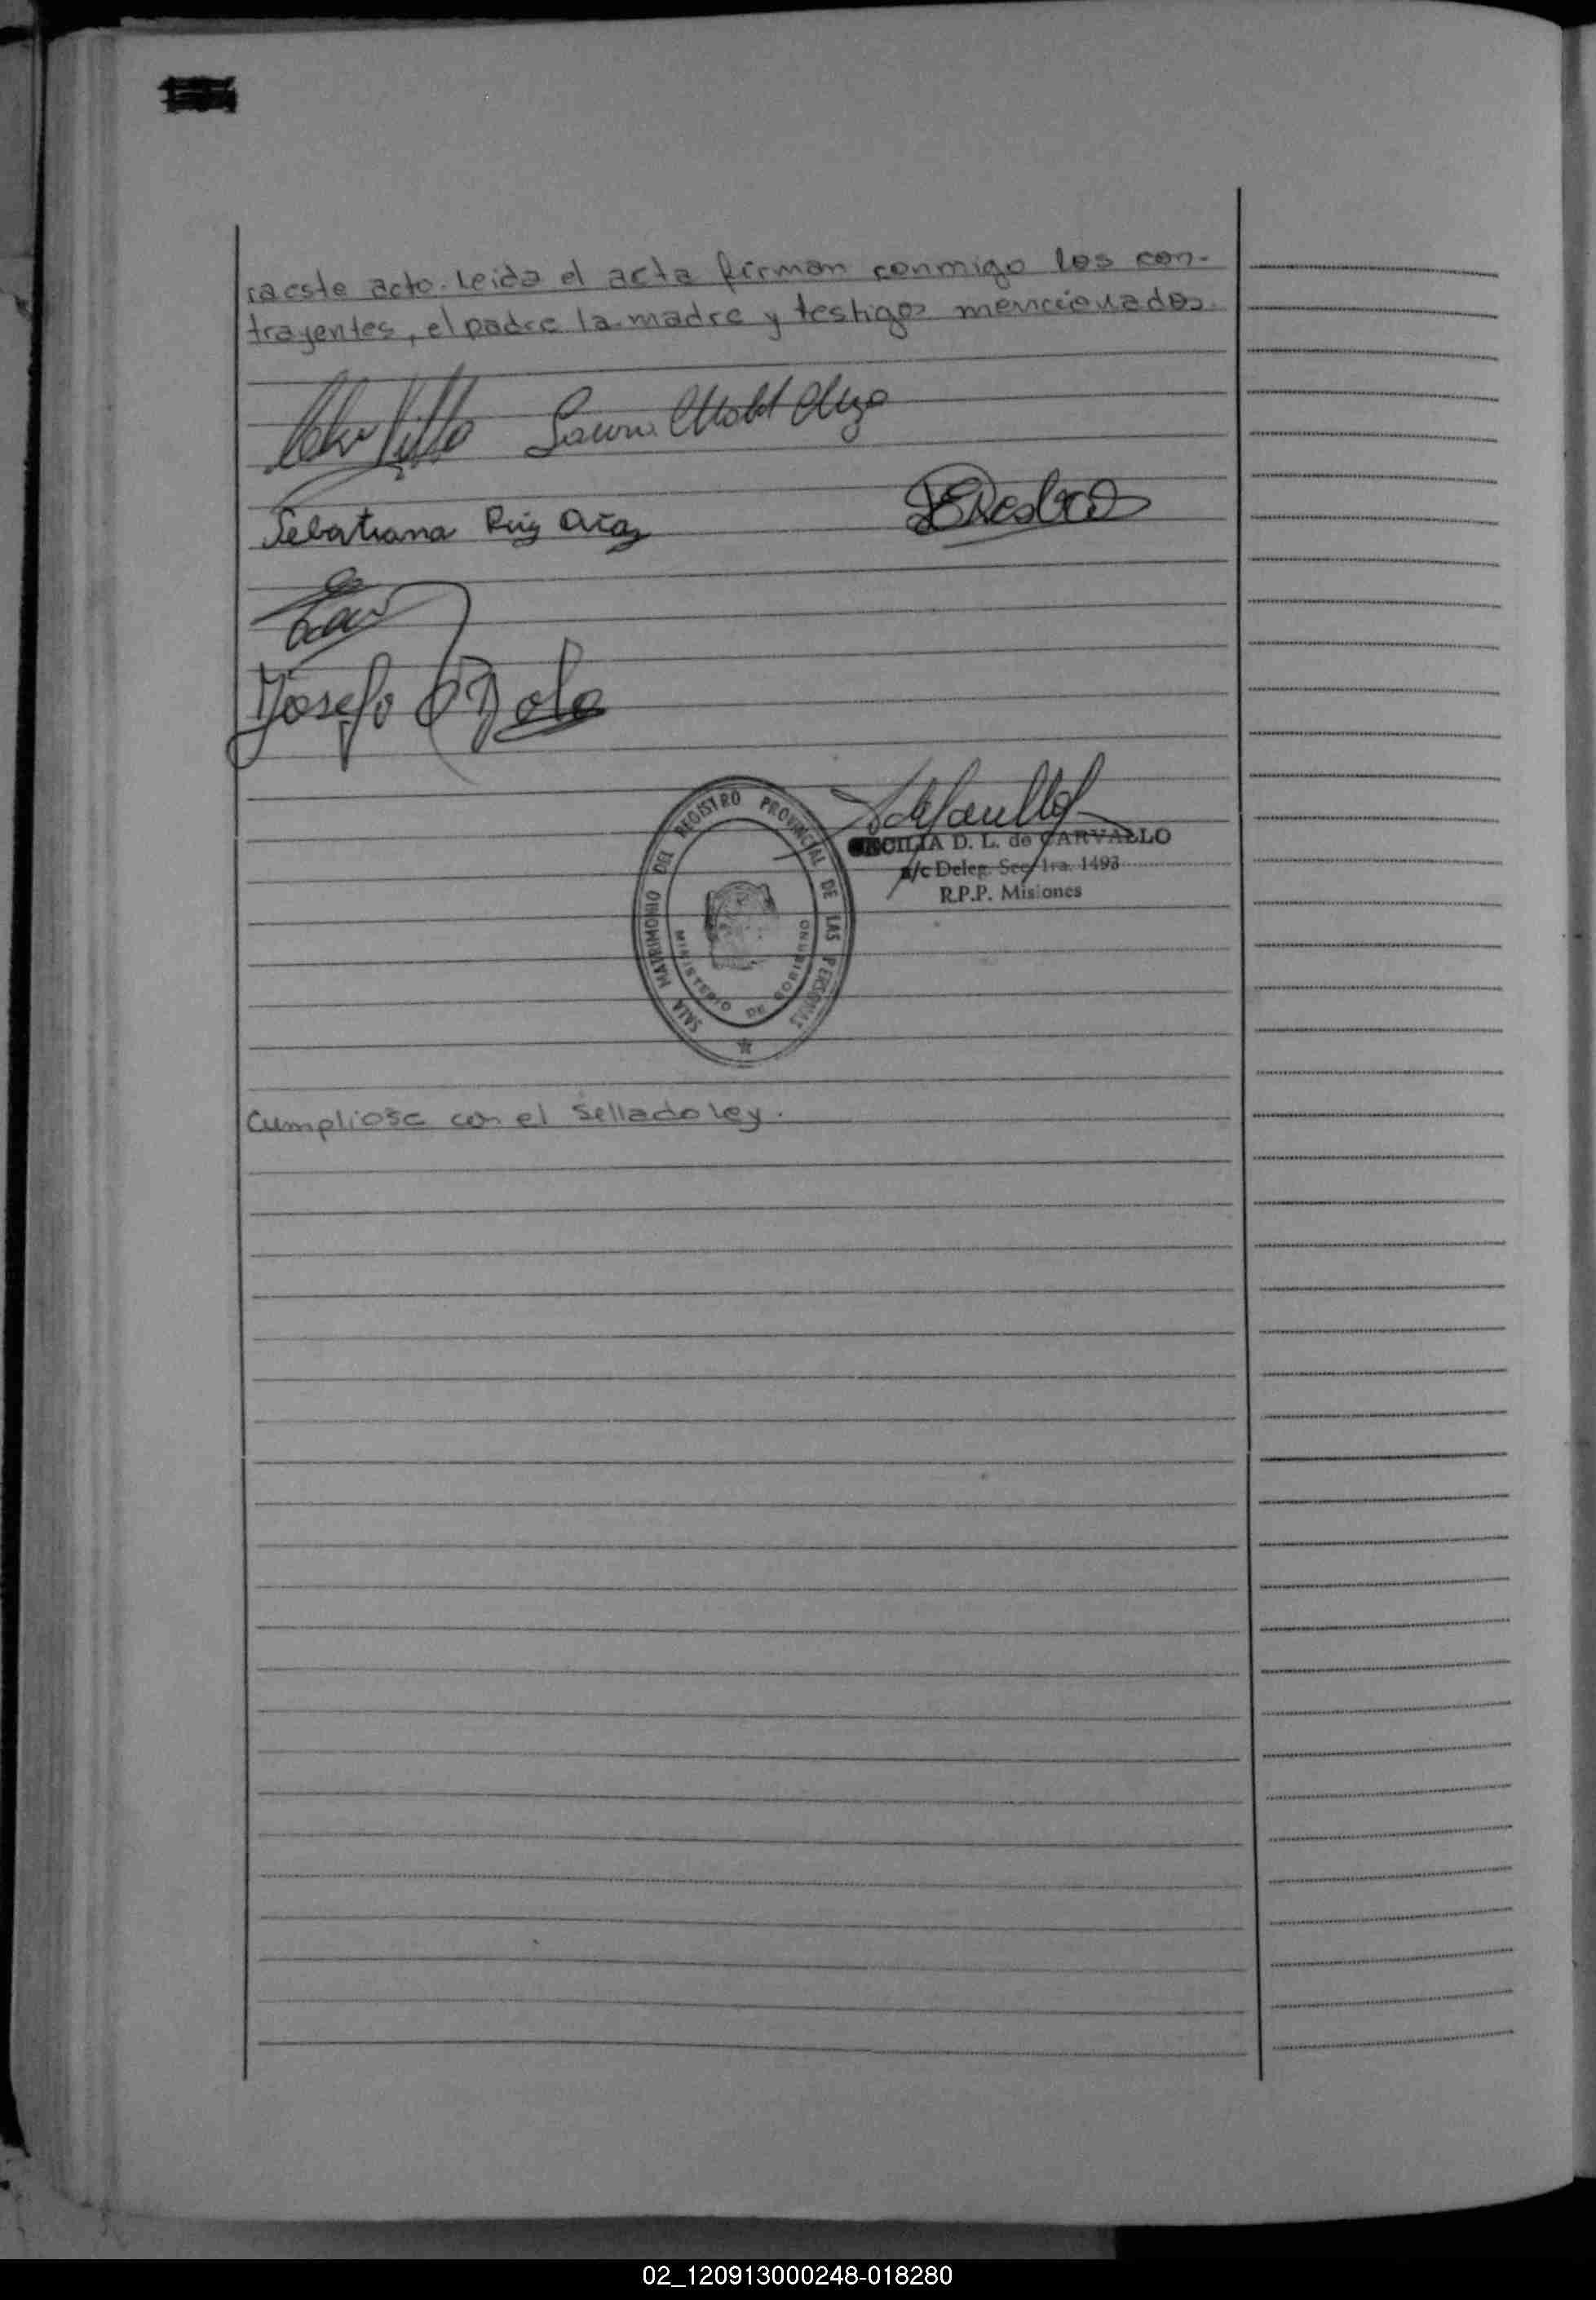 ra este acto. Leida el acta firman conmigo los con-
trayentes, el padre la madre y testigos mencionados.
Sebatiana Ruiz Diaz
Josefa
SALA MATRIMONIO DEL REGISTRO PROVINCIAL DE LAS PERSONAS
MINISTERIO DE GOBIERNO
CECILIA D. L. de CARVALLO
a/c Deleg. Sec. 1ra. 1493
R.P.P. Misiones
Cumpliose con el sellado ley.
02_120913000248-018280